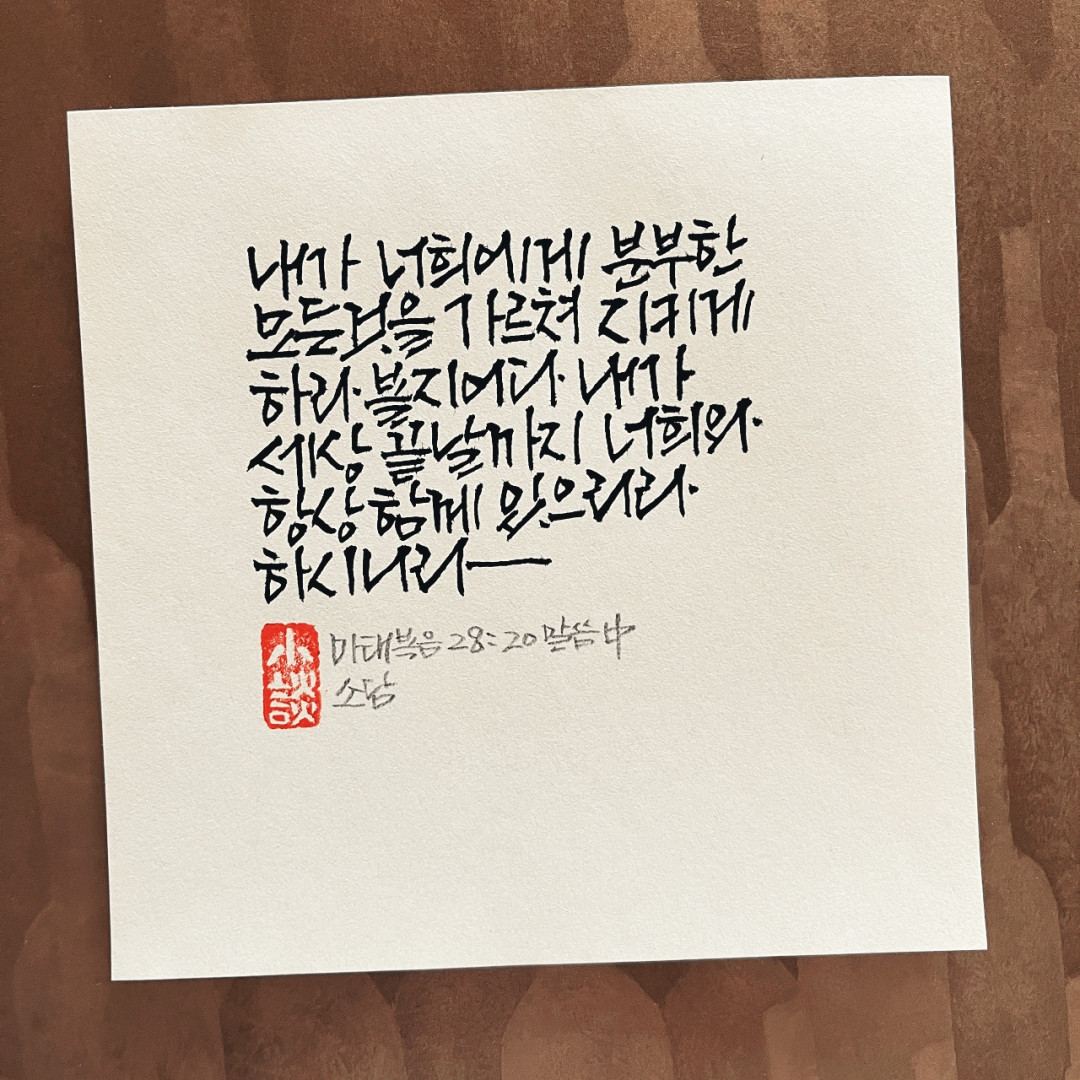 내가 너희에게 분부한
모든것을 가르쳐 지키게
하라. 볼지어다. 내가
세상 끝날까지 너희와
항상 함께 있으리라.
하시니라—
小談
마태복음 28:20 말씀 中
소담